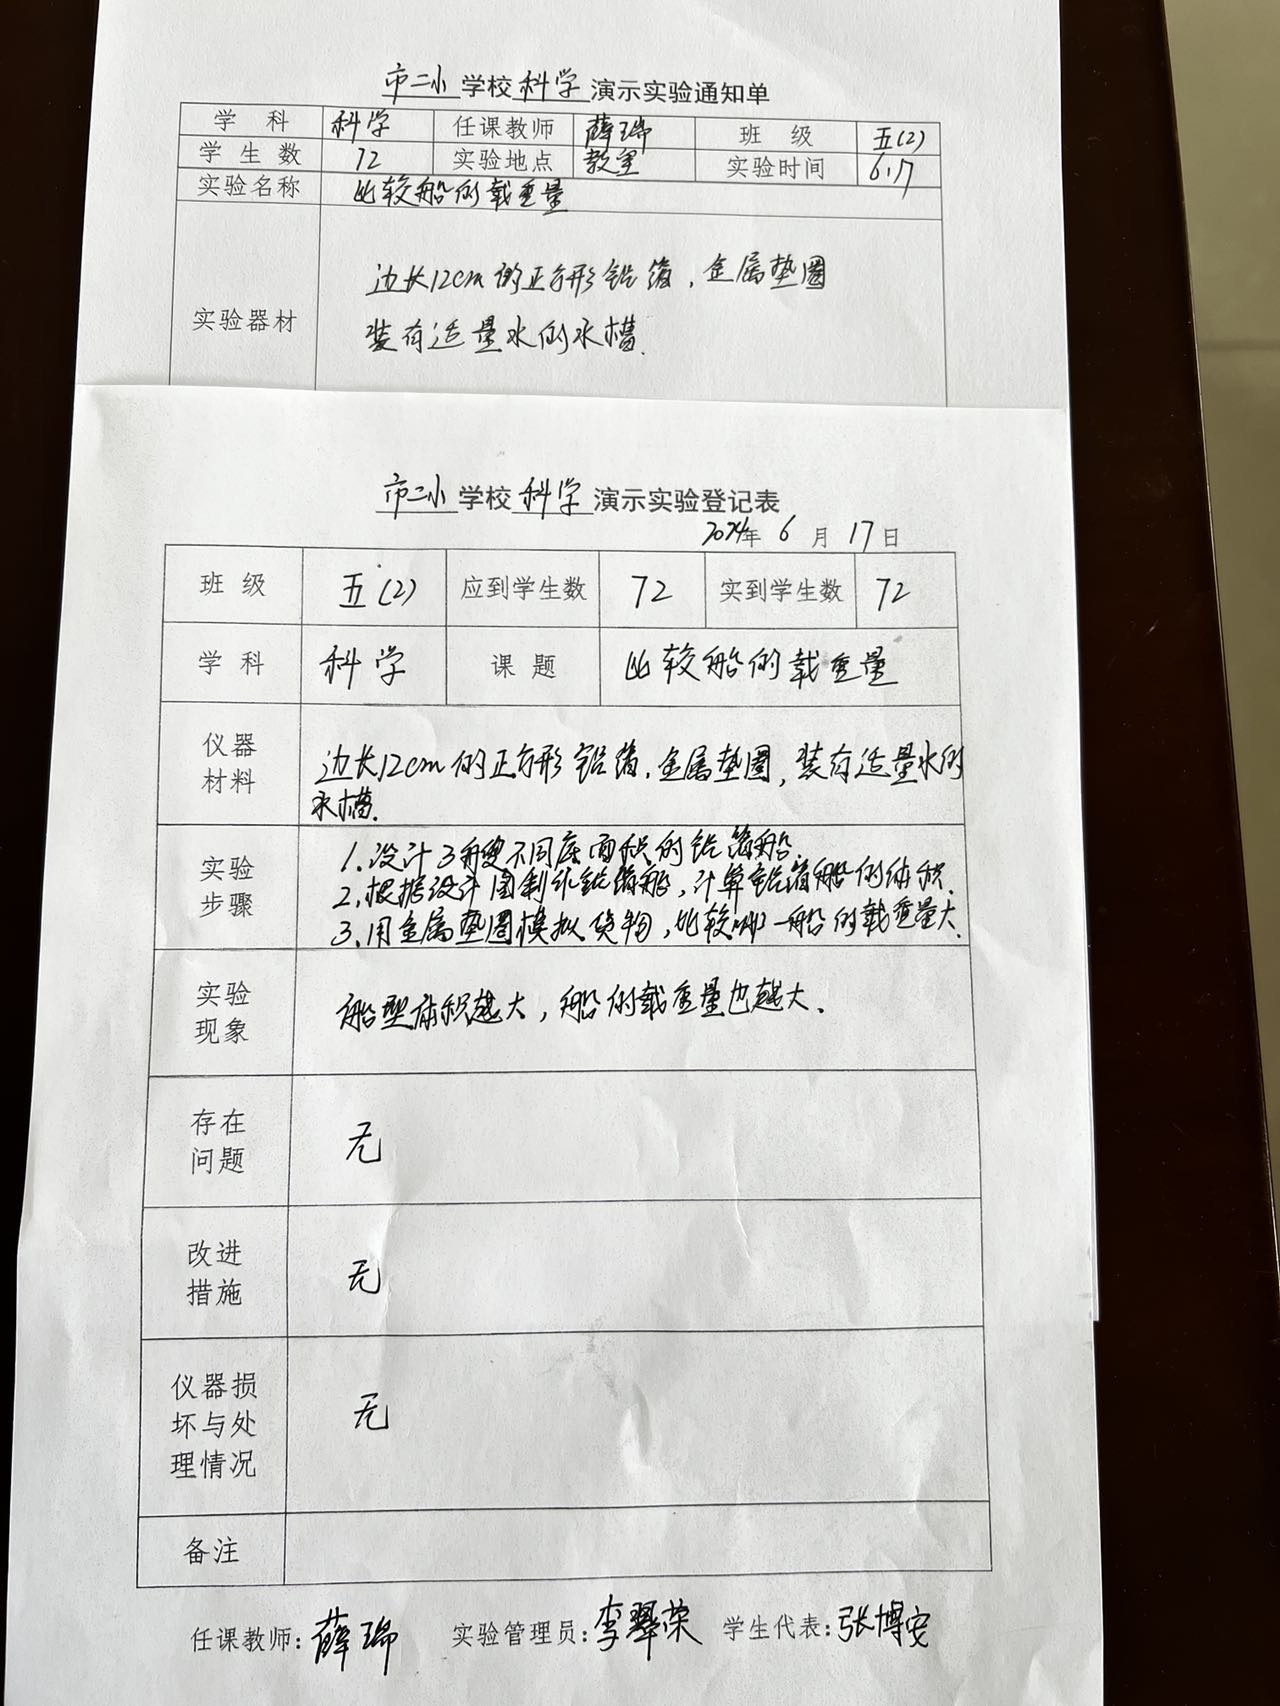 市二小学校科学演示实验通知单
学 科 科学 任课教师 薛瑞 班 级 五(2)
学 生 数 72 实验地点 教室 实验时间 6.17
实验名称 比较船的载重量
边长12cm的正方形铝箔,金属垫圈
实验器材
装有适量水的水槽.
市二小学校科学演示实验登记表
2024年 6 月 17 日
班 级 五(2) 应到学生数 72 实到学生数 72
学 科 科学 课 题 比较船的载重量
仪器
材料
边长12cm的正方形铝箔,金属垫圈,装有适量水的
水槽.
实验
步骤
1.设计3艘不同底面积的铝箔船.
2.根据设计图制作铝箔船,计算铝箔船的体积.
3.用金属垫圈模拟货物,比较哪一船的载重量大.
实验
现象
船型体积越大,船的载重量也越大.
存在
问题
无
改进
措施
无
仪器损
坏与处
理情况
无
备注
任课教师:薛瑞 实验管理员:李翠荣 学生代表:张博安